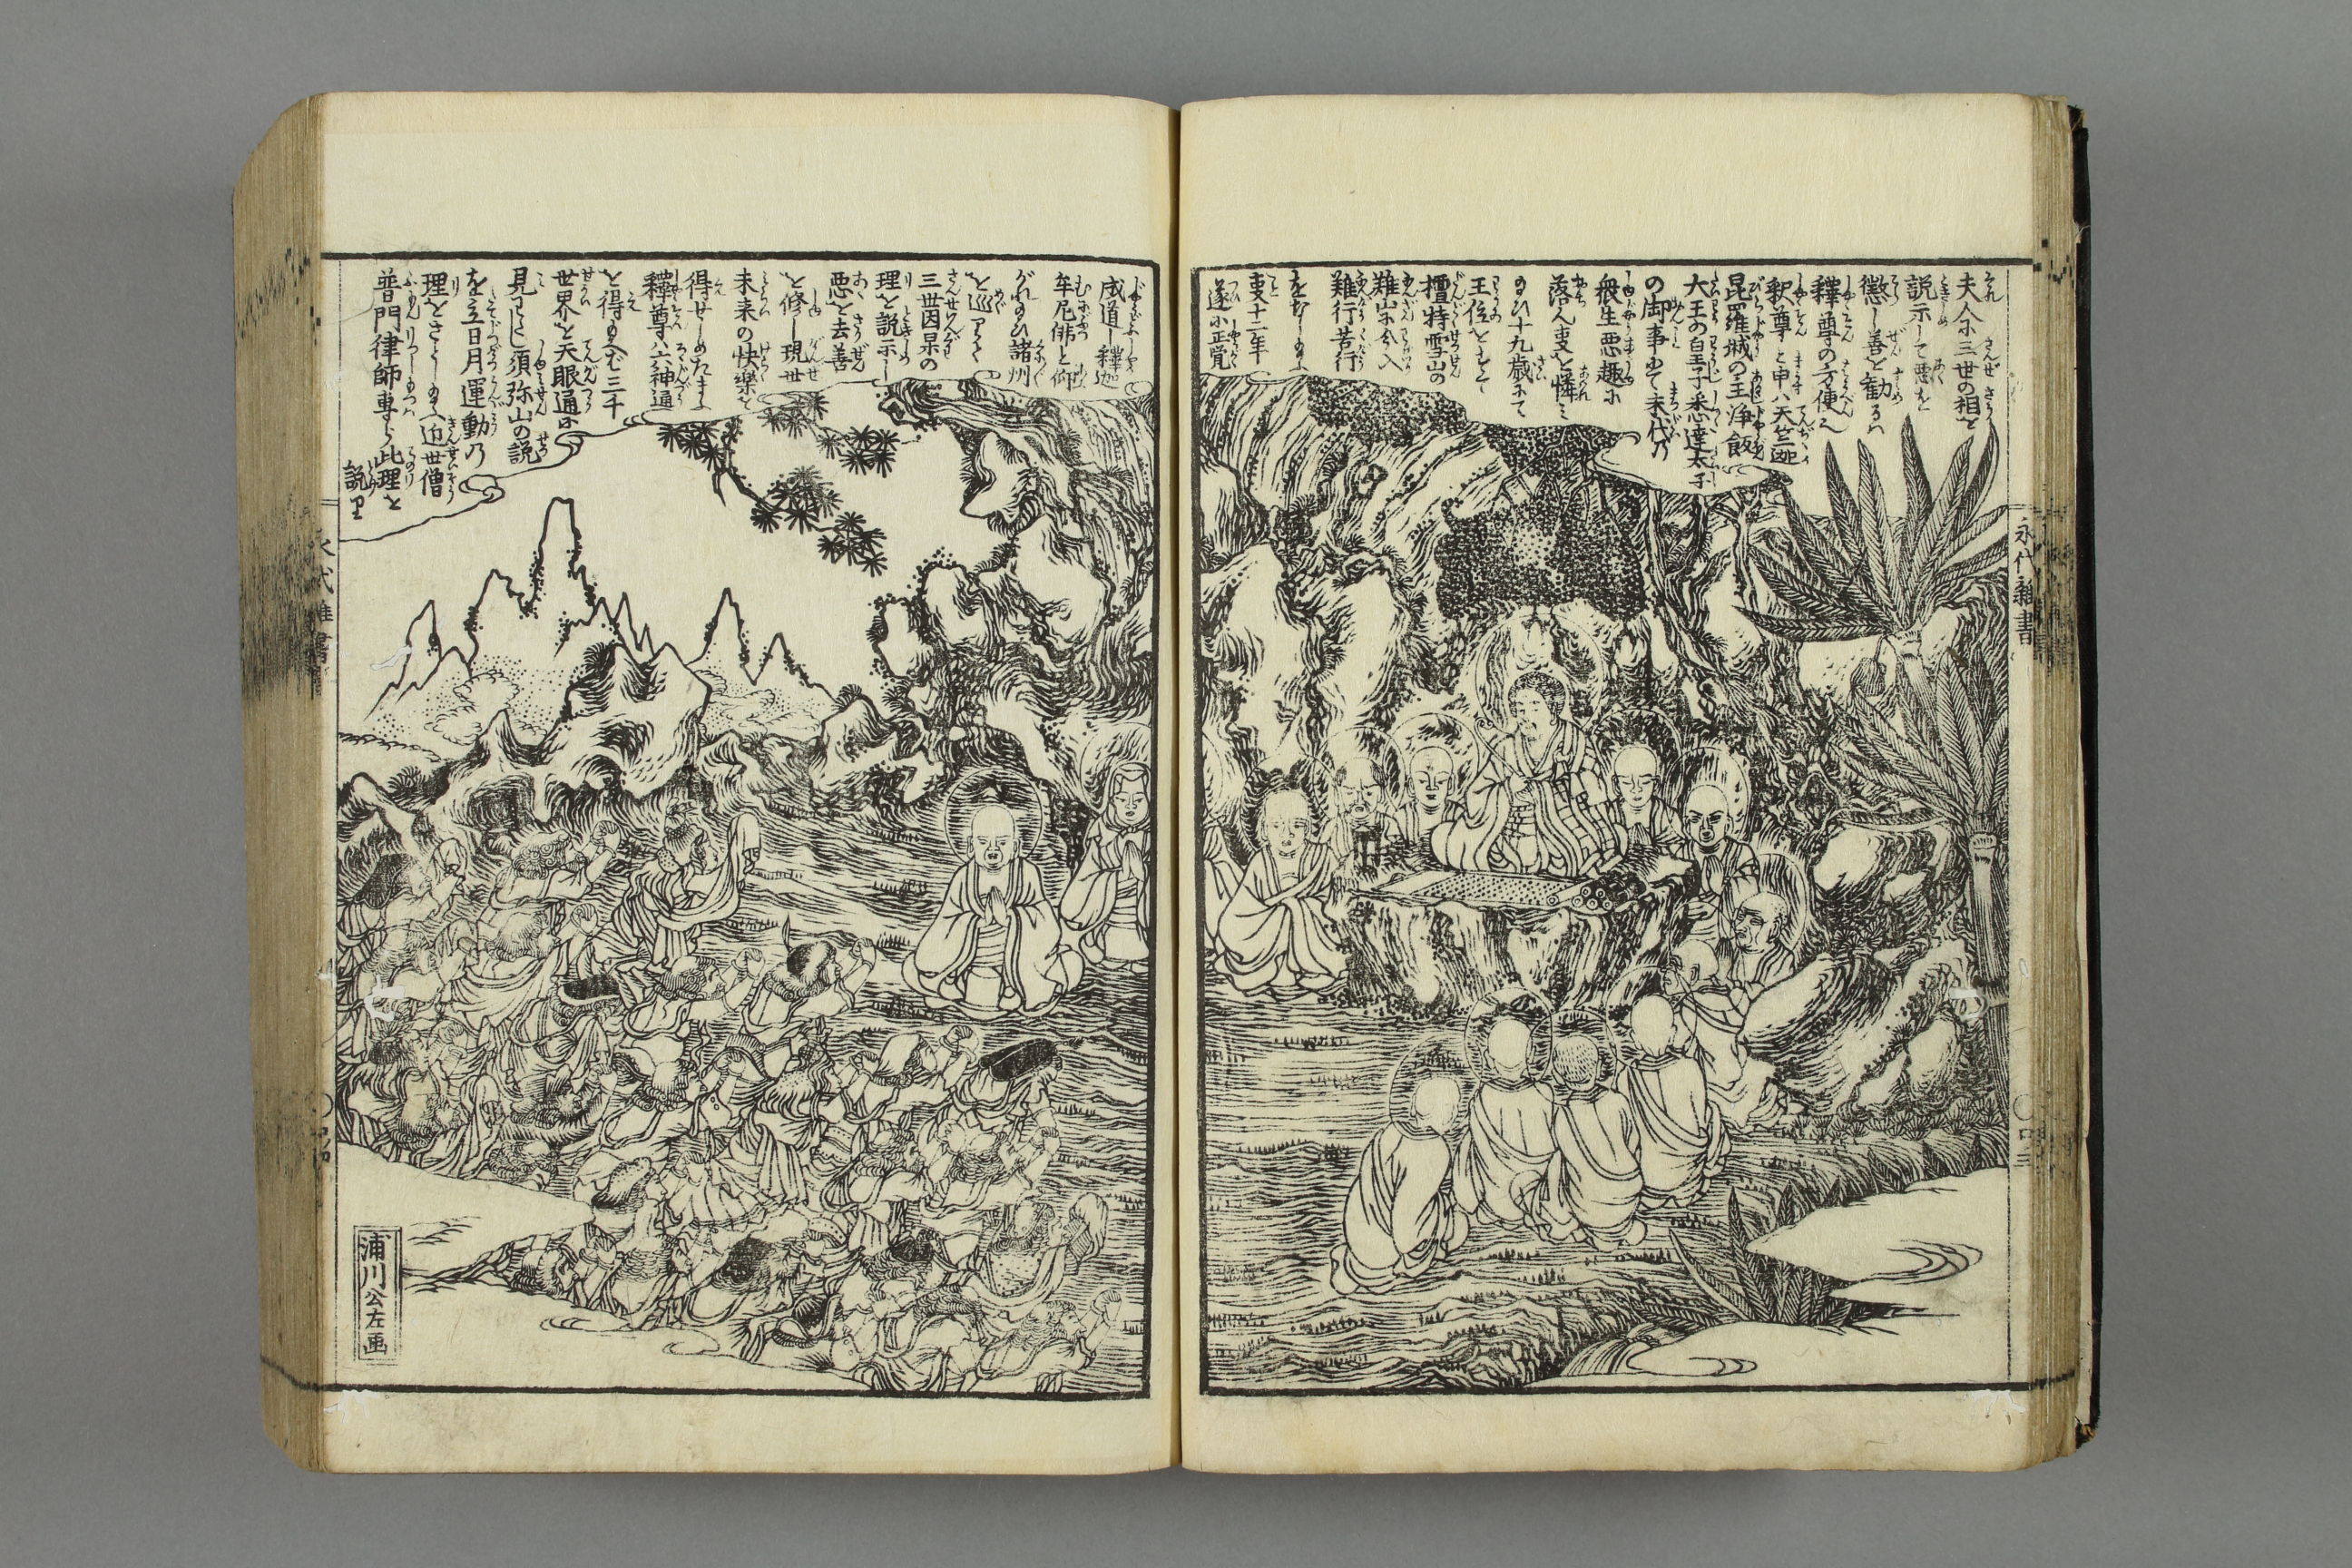 夫人爾三世の相を
説示して悪を
懲し善を勧るハ
釋尊の方便也
釈尊と申ハ天竺迦
毘羅城の主浄飯
大王の皇子悉達太子
の御事にて未代乃
衆生悪趣に
落ん事を憐ミ
王位をすてて
のひ十九歳にて
檀特雪山の
難山に分入
難行苦行
をなしのふ
事十二年
遂に正覚
成道し釋迦
牟尼佛と仰
がれのひ諸州
を巡りて
三世因果の
理を説示し
悪を去善
を修し現世
未来の快樂を
得せしめたまふ
釋尊ハ六神通
を得のへバ三千
世界を天眼通に
見そなはし須弥山の説
を立日月運動乃
理をさとしのふ近世僧
普門律師専ら此理を
説り
永代雑書
四三
永代雑書
四四
浦川公左画